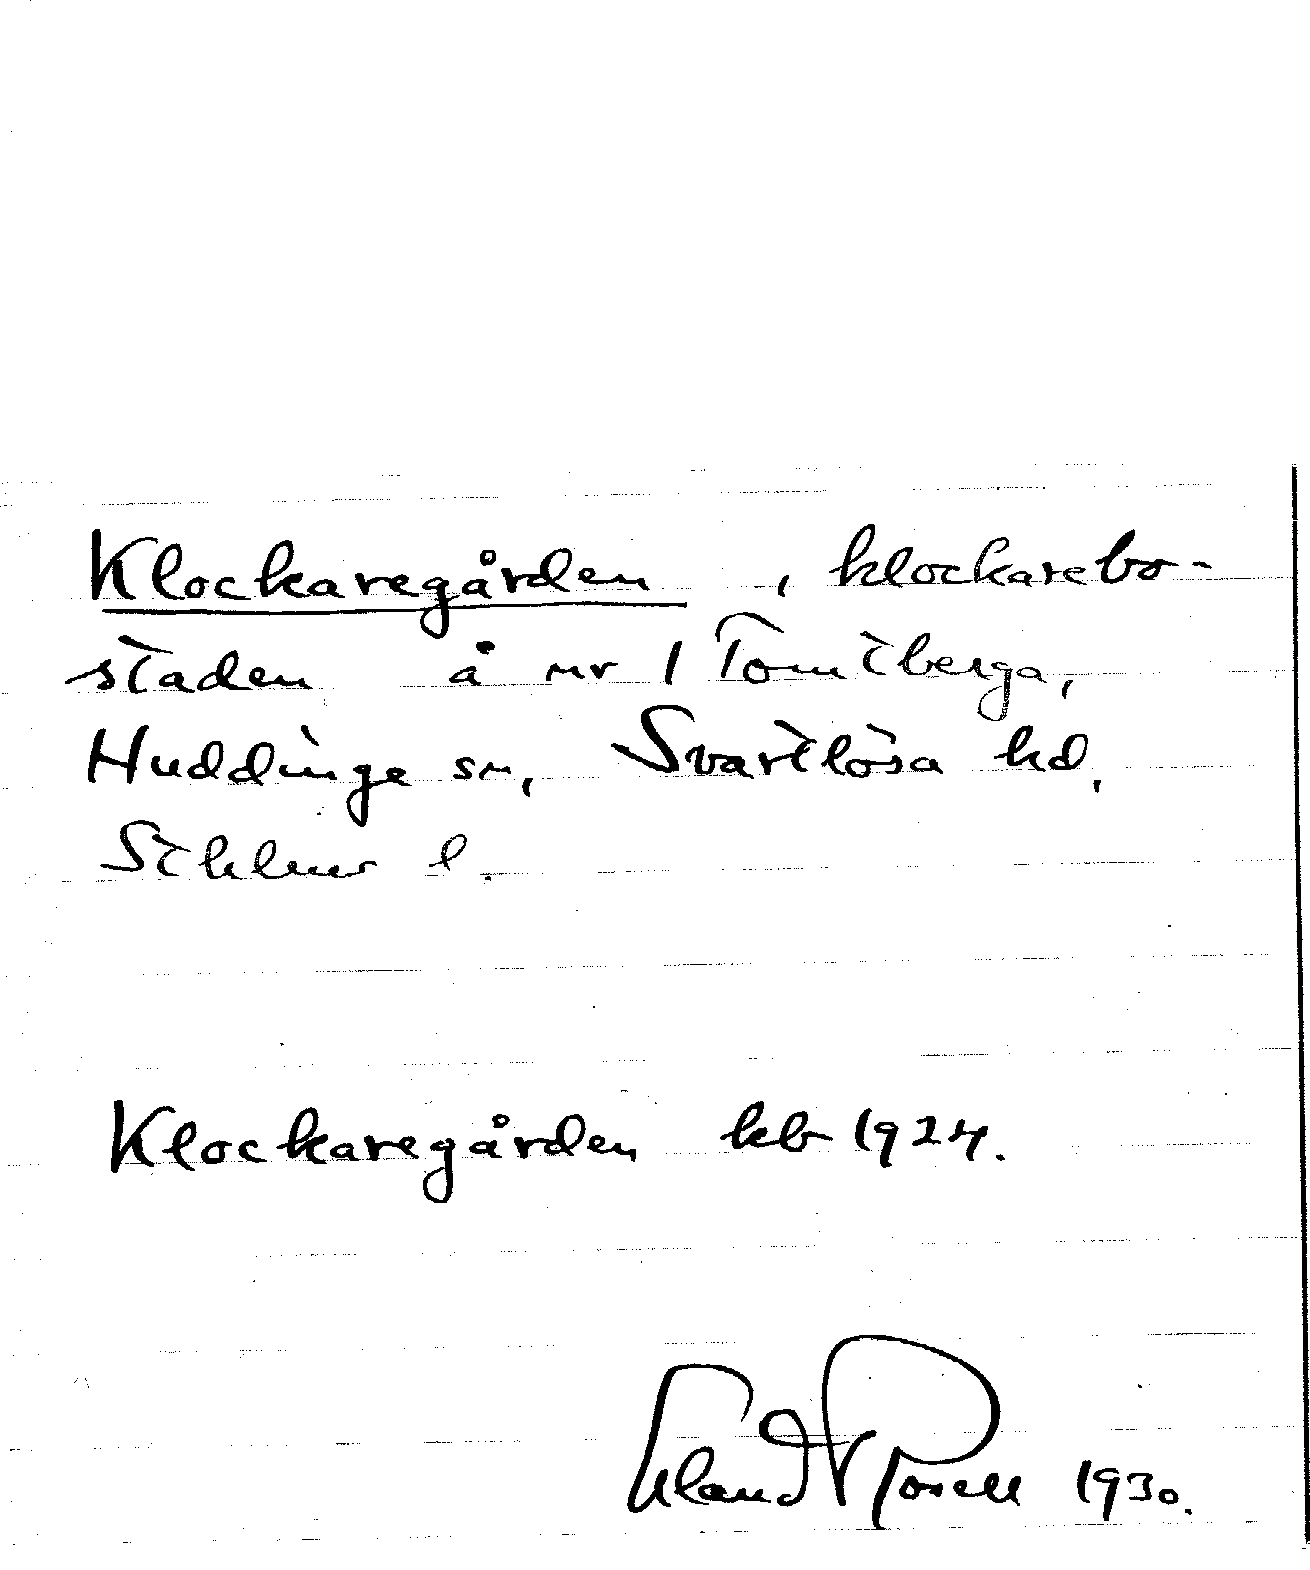 Klockaregården, klockarebo-
staden å nr 1 Tomtberga,
Huddinge sn, Svartlösa hd,
Sthlms l.
Klockaregården kb 1924.
Erland Rosell 1930.